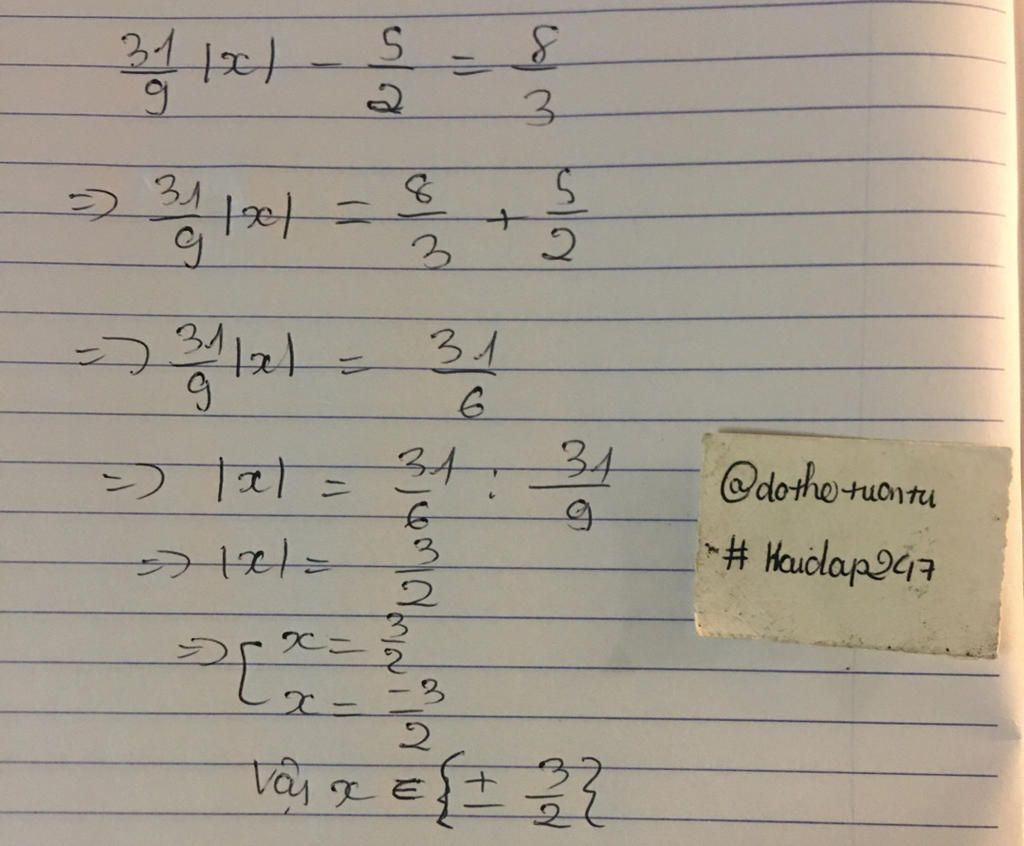 31/9 |x| - 5/2 = 8/3
=> 31/9 |x| = 8/3 + 5/2
=> 31/9 |x| = 31/6
=> |x| = 31/6 : 31/9
=> |x| = 3/2
=> [ x = 3/2
x = -3/2
Vậy x ∈ {± 3/2}
@dothetuantu
# Hoidap247